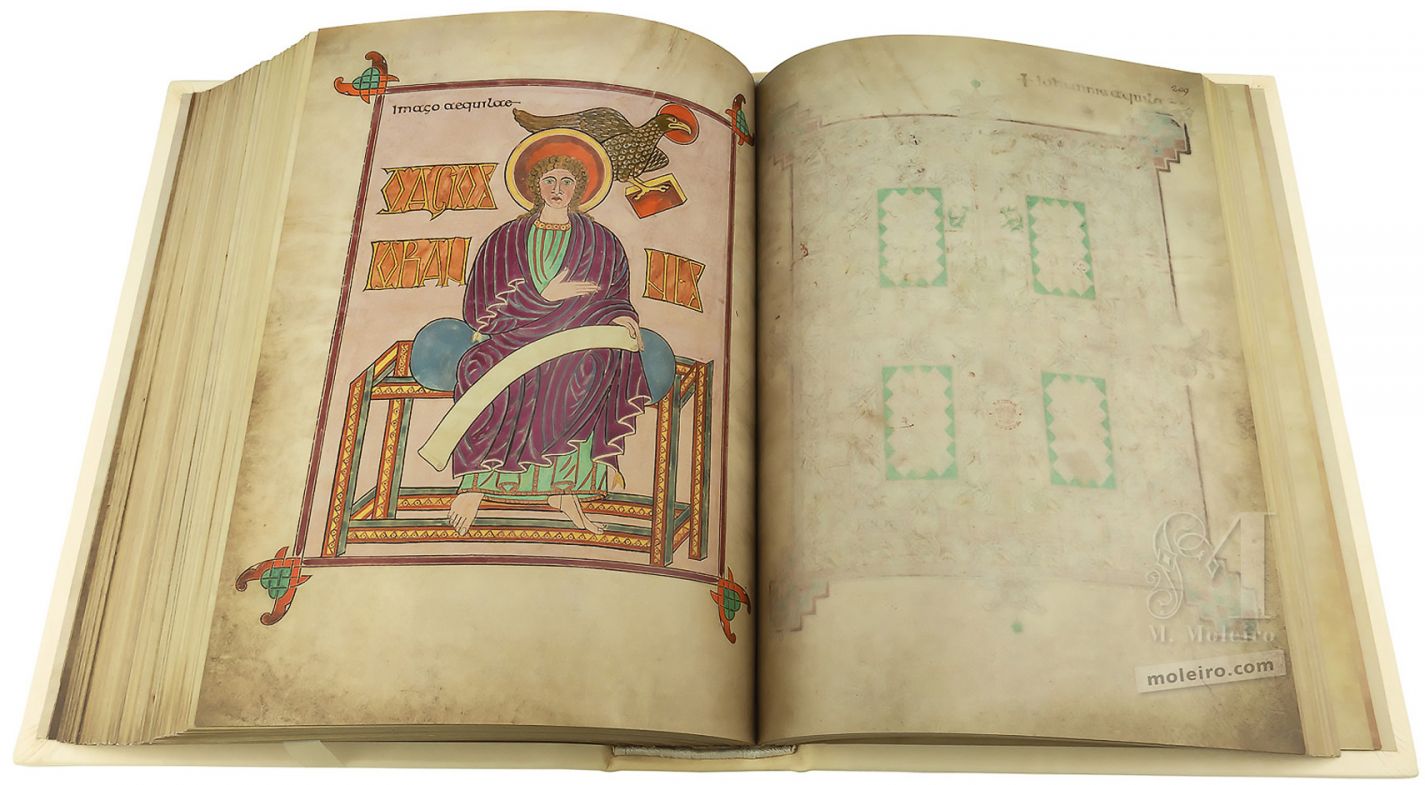 imago aequilae
O AGIOS
IOHAN NES
209
M. Moleiro
moleiro.com